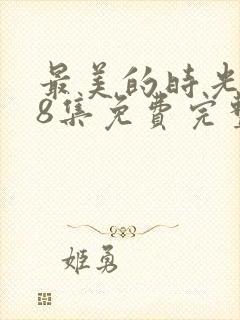 最美的时光
8集免费完整
姬勇